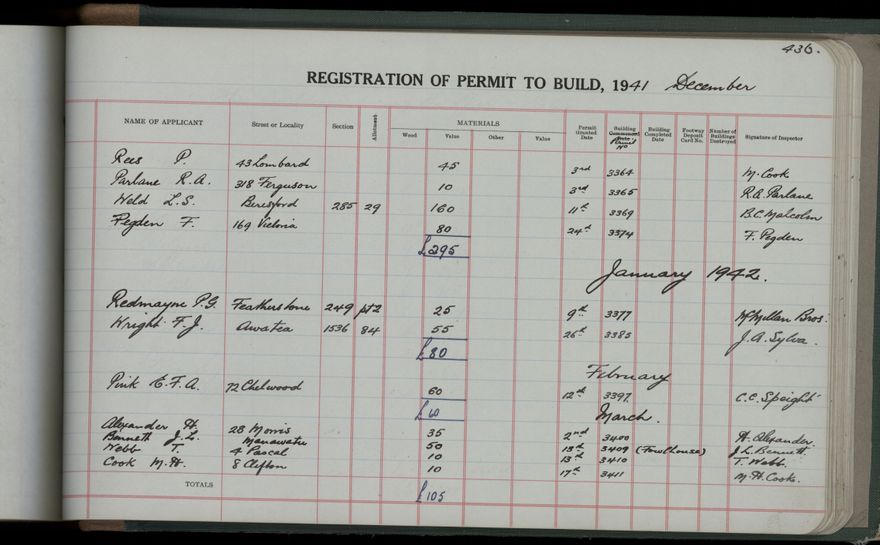 436.
REGISTRATION OF PERMIT TO BUILD, 1941 December
NAME OF APPLICANT Street or Locality Section Allotment MATERIALS Wood Value Other Value Permit Granted Date Building Commenced Date Permit No Building Completed Date Footway Deposit Card No. Number of Buildings Destroyed Signature of Inspector
Rees P. 43 Lombard 45 3rd 3364 M. Cook
Parlane R.A. 318 Ferguson 10 3rd 3365 R.A. Parlane
Weld L.S. Beresford 285 29 160 11th 3369 B.C. Malcolm
Pegden F. 169 Victoria 80 24th 3374 F. Pegden
£295
January 1942.
Redmayne P.G. Featherstone 249 pt 2 25 9th 3377 McMillan Bros.
Wright F.J. Awatea 1536 84 55 26th 3385 J.A. Sylva.
£80
February
Pink E.F.A. 72 Chelwood 60 12th 3397 C.C. Speight
£60
March.
Alexander H. 28 Morris 35 2nd 3400 H. Alexander.
Bennett J.L. Manawatu 50 13th 3409 (Fowlhouse) J.L. Bennett.
Webb T. 4 Pascal 10 13th 3410 T. Webb.
Cook M.H. 8 Clifton 10 17th 3411 M.H. Cook.
TOTALS £105